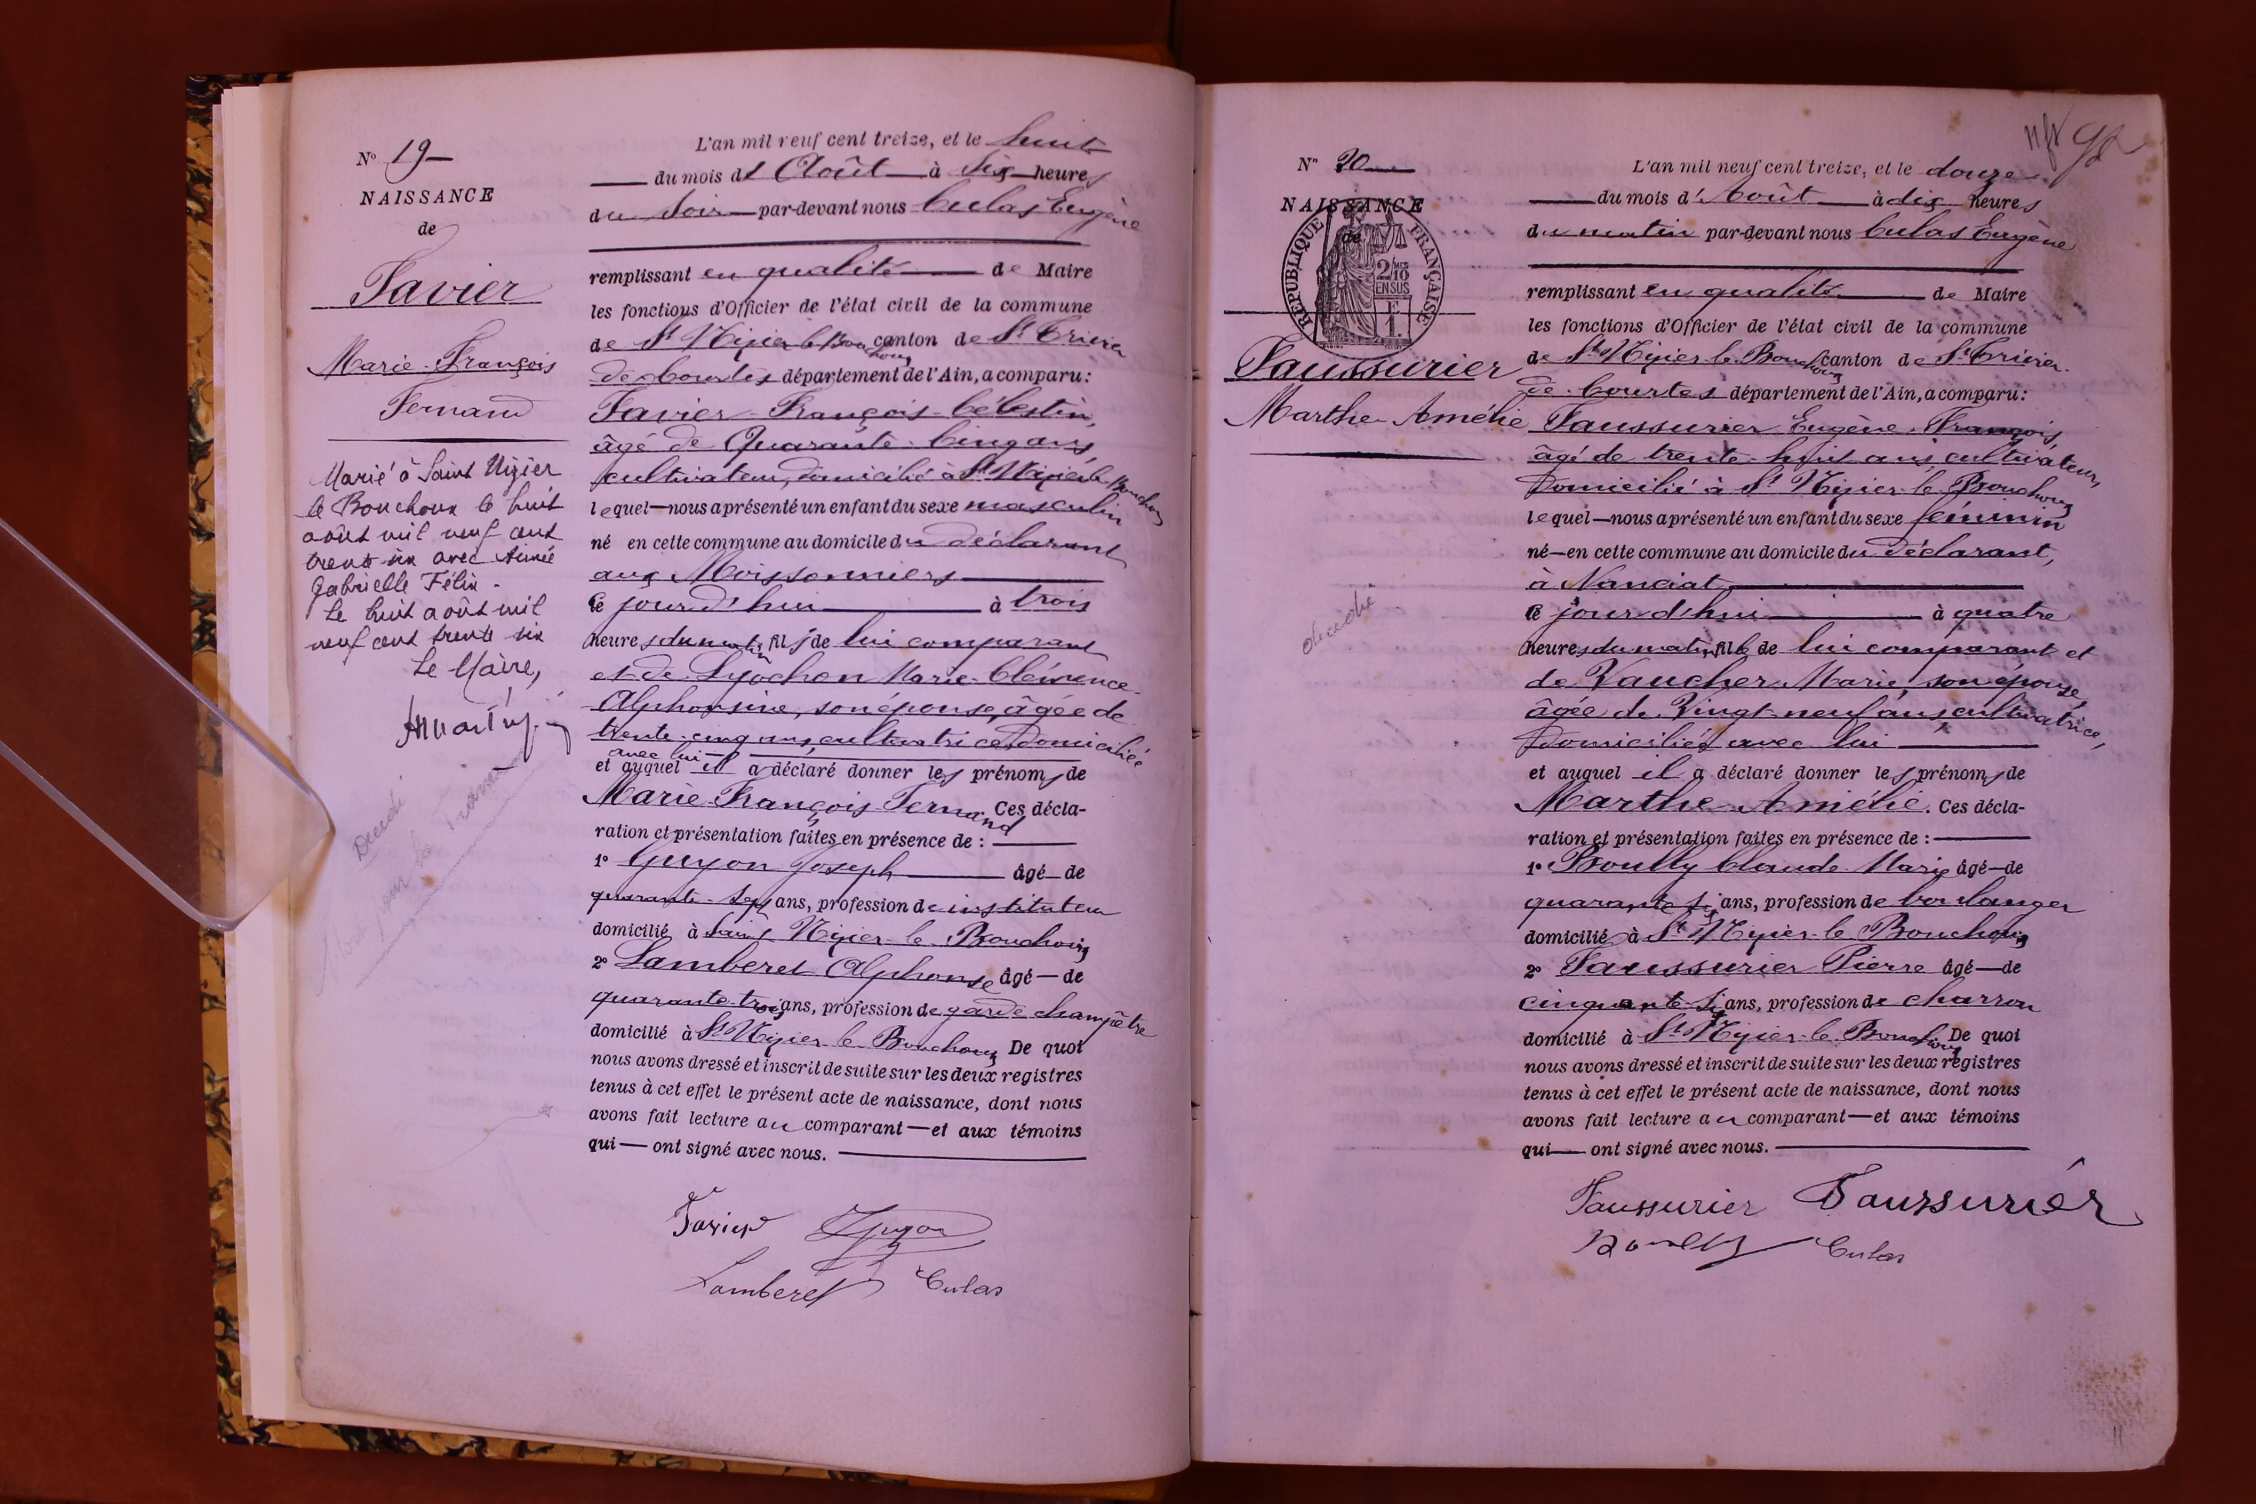 N° 19
NAISSANCE
de
Favier
Marie-François
Fernand
Marié à Saint Nizier
le Bouchoux le huit
août mil neuf cent
trente six avec Aimée
Gabrielle Félix.
Le huit août mil
neuf cent trente six
Le Maire,
Décédé
Mort pour la France
L'an mil neuf cent treize, et le huit
du mois d'Août à Six heures
du Soir par-devant nous Culas Eugène
remplissant en qualité de Maire
les fonctions d'Officier de l'état civil de la commune
de St Nizier-le-Bouchoux canton de St Trivier
de Courtes département de l'Ain, a comparu:
Favier François-Célestin,
âgé de Quarante-Cinq ans,
cultivateur, domicilié à St Nizier-le-Bouchoux
lequel nous a présenté un enfant du sexe masculin
né en cette commune au domicile du déclarant
aux Moissonniers
Ce jour d'hui à trois
heures du matin, fils de lui comparant
et de Lyôchon Marie-Clémence-
Alphonsine, son épouse, âgée de
trente-cinq ans, cultivatrice, domiciliée
avec lui
et auquel il a déclaré donner les prénoms de
Marie-François-Fernand Ces décla-
ration et présentation faites en présence de :
1° Guyon Joseph âgé de
quarante-sept ans, profession de instituteur
domicilié à Saint Nizier-le-Bouchoux
2° Lamberet Alphonse âgé de
quarante-trois ans, profession de garde champêtre
domicilié à St Nizier-le-Bouchoux De quoi
nous avons dressé et inscrit de suite sur les deux registres
tenus à cet effet le présent acte de naissance, dont nous
avons fait lecture au comparant et aux témoins
qui ont signé avec nous.
Favier Guyon
Lamberet Culas
N° 20
NAISSANCE
de
RÉPUBLIQUE FRANÇAISE
2/10 MES
EN SUS
E
1.
Faussurier
Marthe-Amélie
décédée
L'an mil neuf cent treize, et le douze
du mois d'Août à dix heures
du matin par-devant nous Culas Eugène
remplissant en qualité de Maire
les fonctions d'Officier de l'état civil de la commune
de St Nizier-le-Bouchoux canton de St Trivier
de Courtes département de l'Ain, a comparu:
Faussurier Eugène-François,
âgé de trente-huit ans, cultivateur,
domicilié à St Nizier-le-Bouchoux
lequel nous a présenté un enfant du sexe féminin
né en cette commune au domicile du déclarant,
à Nanciat
Ce jour d'hui à quatre
heures du matin, fille de lui comparant et
de Vaucher Marie, son épouse,
âgée de Vingt-neuf ans, cultivatrice,
domiciliée avec lui
et auquel il a déclaré donner les prénoms de
Marthe-Amélie. Ces décla-
ration et présentation faites en présence de :
1° Boully Claude-Marie âgé de
quarante-six ans, profession de boulanger
domicilié à St Nizier-le-Bouchoux
2° Faussurier Pierre âgé de
cinquante-six ans, profession de charron
domicilié à St Nizier-le-Bouchoux De quoi
nous avons dressé et inscrit de suite sur les deux registres
tenus à cet effet le présent acte de naissance, dont nous
avons fait lecture au comparant et aux témoins
qui ont signé avec nous.
Faussurier Faussurier
Boully Culas